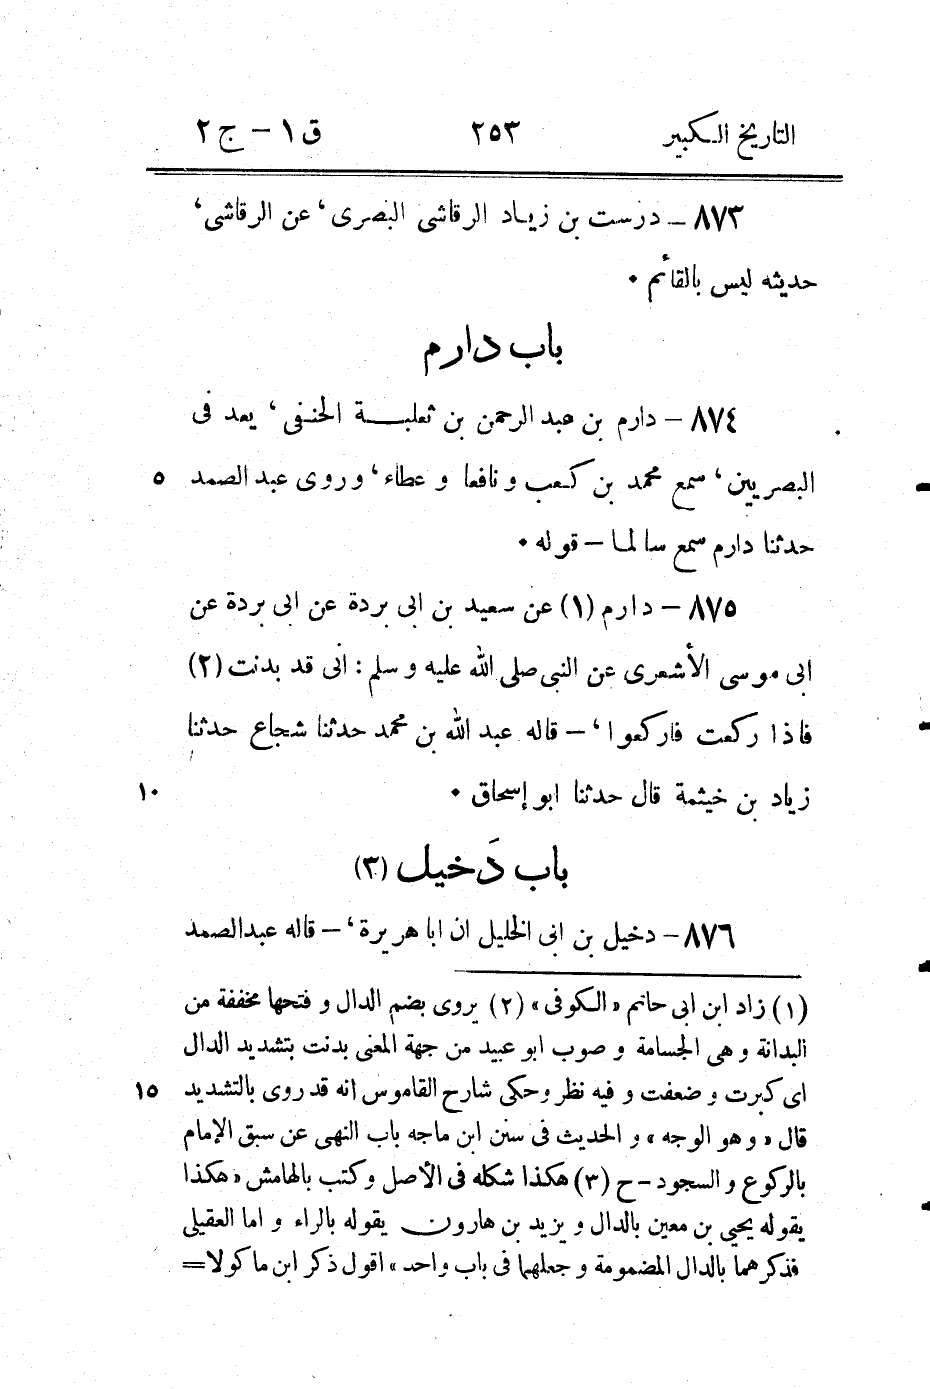 التاريخ الكبير ٢٥٣ ق ١ – ج ٢
٨٧٣ – درست بن زياد الرقاشى البصرى، عن الرقاشى،
حديثه ليس بالقائم ٠
باب دارم
٨٧٤ – دارم بن عبد الرحمن بن ثعلبة الحنفى، يعد فى
البصريين، سمع محمد بن كعب و نافعا و عطاء، و روى عبد الصمد ٥
حدثنا دارم سمع سالما – قوله ٠
٨٧٥ – دارم (١) عن سعيد بن ابى بردة عن ابى بردة عن
ابى موسى الأشعرى عن النبى صلى الله عليه و سلم : انى قد بدنت (٢)
فاذا ركعت فاركعوا، – قاله عبد الله بن محمد حدثنا شجاع حدثنا
زياد بن خيثمة قال حدثنا ابو إسحاق ٠ ١٠
باب دَخيل (٣)
٨٧٦ – دخيل بن ابى الخليل ان ابا هريرة، – قاله عبد الصمد
(١) زاد ابن ابى حاتم « الكوفى » (٢) يروى بضم الدال و فتحها مخففة من
البدانة و هى الجسامة و صوب ابو عبيد من جهة المعنى بدنت بتشديد الدال
اى كبرت و ضعفت و فيه نظر وحكى شارح القاموس انه قد روى بالتشديد ١٥
قال « و هو الوجه » و الحديث فى سنن ابن ماجه باب النهى عن سبق الإمام
بالركوع و السجود – ح (٣) هكذا شكله فى الأصل و كتب بالهامش « هكذا
يقوله يحيى بن معين بالدال و يزيد بن هارون يقوله بالراء و اما العقيلى
فذكرهما بالدال المضمومة و جعلهما فى باب واحد » اقول ذكر ابن ماكولا =